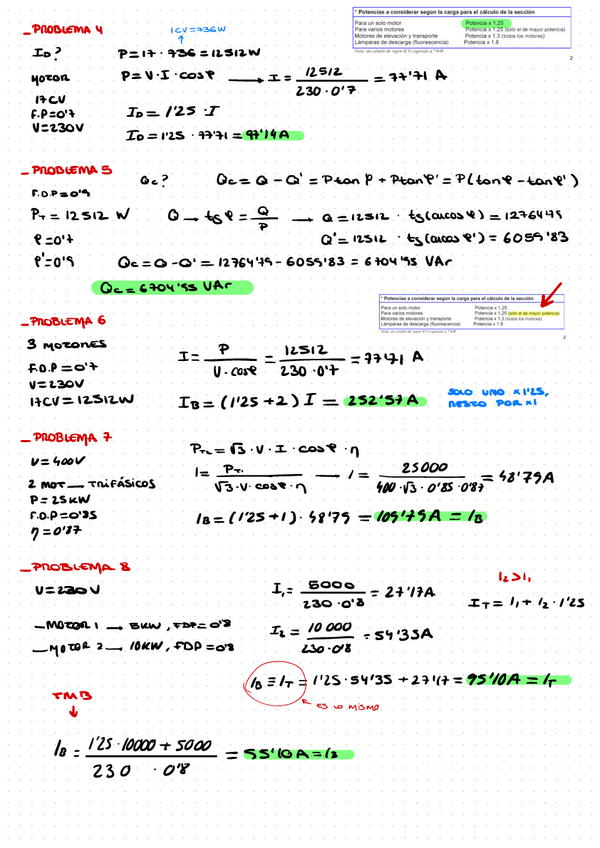 _ PROBLEMA 4
1CV=736W
* Potencias a considerar según la carga para el cálculo de la sección
Para un solo motor Potencia x 1,25
Para varios motores Potencia x 1,25 (sólo el de mayor potencia)
Motores de elevación y transporte Potencia x 1,3 (todos los motores)
Lámparas de descarga (fluorescencia) Potencia x 1,8
2
ID? P=17·736=12512W
MOTOR P=V·I·cosφ → I= 12512 / 230·0'7 = 77'71 A
17CV
F.P=0'7 ID=1'25·I
V=230V
ID=1'25·77'71=97'14A
_ PROBLEMA 5
Qc? Qc=Q-Q'=Ptanφ+Ptanφ'=P(tanφ-tanφ')
F.D.P=0'9
PT=12512 W Q → tgφ= Q / P → Q=12512·tg(arcosφ)=12764'79
φ=0'7 Q'=12512·tg(arcosφ')=6059'83
φ'=0'9 Qc=Q-Q'=12764'79-6059'83=6704'95 VAr
Qc=6704'95 VAr
* Potencias a considerar según la carga para el cálculo de la sección
Para un solo motor Potencia x 1,25
Para varios motores Potencia x 1,25 (sólo el de mayor potencia)
Motores de elevación y transporte Potencia x 1,3 (todos los motores)
Lámparas de descarga (fluorescencia) Potencia x 1,8
2
_ PROBLEMA 6
3 MOTORES I= P / V·cosφ = 12512 / 230·0'7 = 77'71 A
F.D.P=0'7
V=230V
17CV=12512W IB=(1'25+2) I = 252'57A
SOLO UNO x1'25,
RESTO POR x1
_ PROBLEMA 7
V=400V PTL=√3·V·I·cosφ·η
2 MOT → TRIFÁSICOS I= PT. / √3·V·cosφ·η → I= 25000 / 400·√3·0'85·0'87 = 48'79A
P=25KW
F.D.P=0'85
η=0'87 IB=(1'25+1)·48'79=109'79A=IB
_ PROBLEMA 8
V=230V I1= 5000 / 230·0'8 = 27'17A
I2>I1
IT=I1+I2·1'25
_ MOTOR 1 → 5KW, FDP=0'8
_ MOTOR 2 → 10KW, FDP=0'8 I2= 10000 / 230·0'8 = 54'35A
IB=IT=1'25·54'35+27'17=95'10A=IT
ES LO MISMO
TMB
IB= 1'25·10000+5000 / 230·0'8 = 95'10A=IB